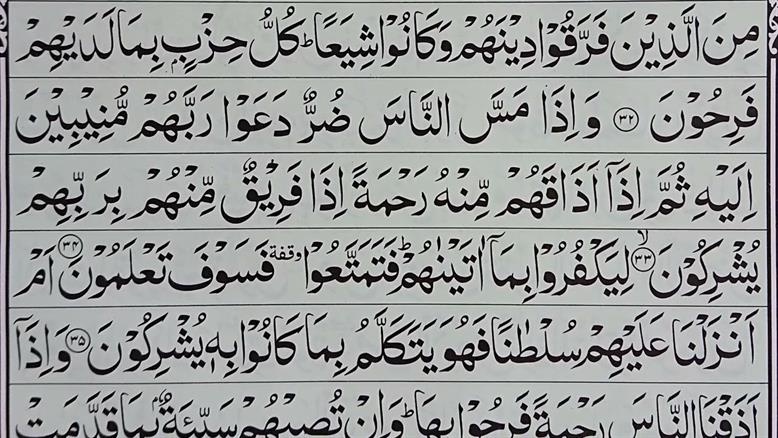 مِنَ الَّذِيْنَ فَرَّقُوْا دِيْنَهُمْ وَكَانُوْا شِيَعًا ؕ كُلُّ حِزْبٍۭ بِمَا لَدَيْهِمْ
فَرِحُوْنَ ﴿۳۲﴾ وَاِذَا مَسَّ النَّاسَ ضُرٌّ دَعَوْا رَبَّهُمْ مُّنِيْبِيْنَ
اِلَيْهِ ثُمَّ اِذَاۤ اَذَاقَهُمْ مِّنْهُ رَحْمَةً اِذَا فَرِيْقٌ مِّنْهُمْ بِرَبِّهِمْ
يُشْرِكُوْنَ ﴿ۙ۳۳﴾ لِيَكْفُرُوْا بِمَاۤ اٰتَيْنٰهُمْ ؕ فَتَمَتَّعُوْا وقفة فَسَوْفَ تَعْلَمُوْنَ ﴿۳۴﴾ اَمْ
اَنْزَلْنَا عَلَيْهِمْ سُلْطٰنًا فَهُوَ يَتَكَلَّمُ بِمَا كَانُوْا بِهٖ يُشْرِكُوْنَ ﴿۳۵﴾ وَاِذَاۤ
اَذَقْنَا النَّاسَ رَحْمَةً فَرِحُوْا بِهَا ؕ وَاِنْ تُصِبْهُمْ سَيِّئَةٌۢ بِمَا قَدَّمَتْ